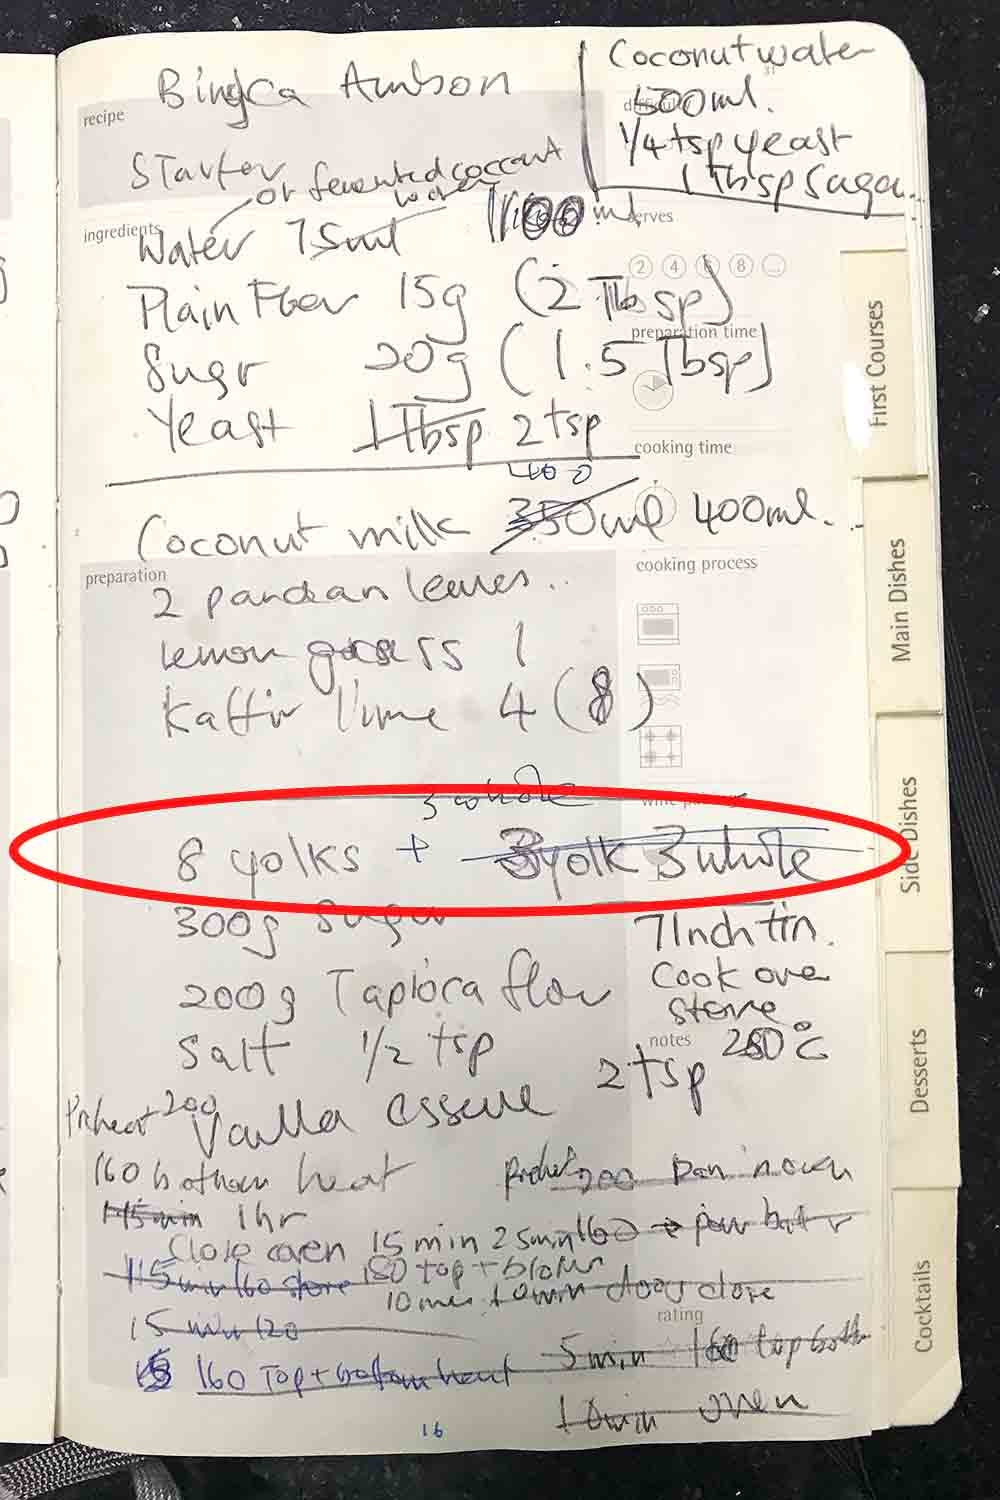 Bingka Ambon
Coconut water
500ml.
1/4 tsp yeast
1 Tbsp sugar.
recipe
difficulty
Starter
or fermented coconut
water
ingredients
Water 75ml 100 ml
serves
2 4 6 8 ...
Plain Flour 15g (2 Tbsp)
preparation time
Sugr 20g (1.5 Tbsp)
Yeast 1 Tbsp 2 tsp
cooking time
400
Coconut milk 350ml 400ml.
cooking process
preparation
2 pandan leaves..
lemon grass 1
Kaffir lime 4 (8)
3 whole
8 yolks + 3yolk 3 whole
300g Sugar
7Inch tin.
200g Tapioca flour
Cook over
stove
Salt 1/2 tsp
notes
280°C
2 tsp
Preheat 200
Vanilla essence
160 bottom heat
Preheat 200 pan in oven
45min 1hr
Close oven 15 min 25min 160 → pour batter
115min 160 stove 180 top + bottom
10min door close
15 min 120
rating
15 160 Top + bottom heat
5min 160 top both
10min oven
16
First Courses
Main Dishes
Side Dishes
Desserts
Cocktails